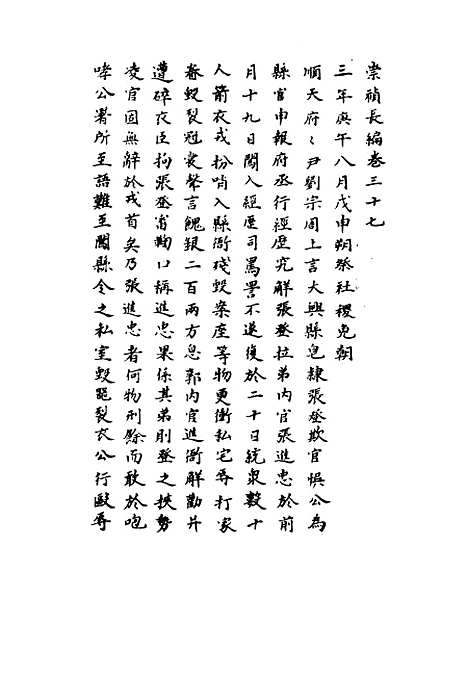 崇禎長編卷三十七
三年庚午八月戊申朔祭社稷免朝
順天府〻尹劉宗周上言大興縣皂隸張登欺官悞公為
縣官申報府丞行經歷究解張登拉弟內官張進忠於前
月十九日闖入經歷司罵詈不遂復於二十日統衆數十
人箭衣戎扮哨入縣衙殘毀案座等物更衝私宅辱打家
眷毀裂冠裳聲言餽銀二百兩方息郭內官進衙解勸并
遭碎衣臣拘張登當面口稱進忠果係其弟則登之挾勢
凌官固無辭於戎首矣乃張進忠者何物刑餘而敢於咆
哮公署所至語難至闖縣令之私室毀冠裂衣公行毆辱